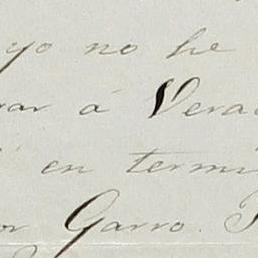 yo no he
rar á Vera
en termi
or Garro.